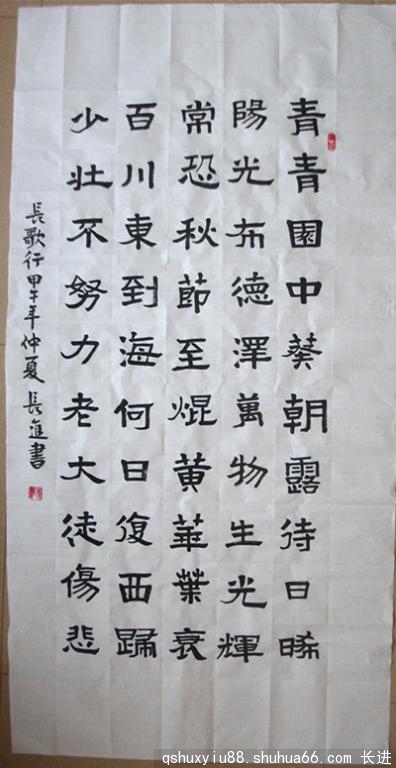 青青園中葵朝露待日晞
陽光布德澤萬物生光輝
常恐秋節至焜黃華葉衰
百川東到海何日復西歸
少壯不努力老大徒傷悲
長歌行甲午年仲夏長進書
qshuxyiu88.shuhua66.com 长进